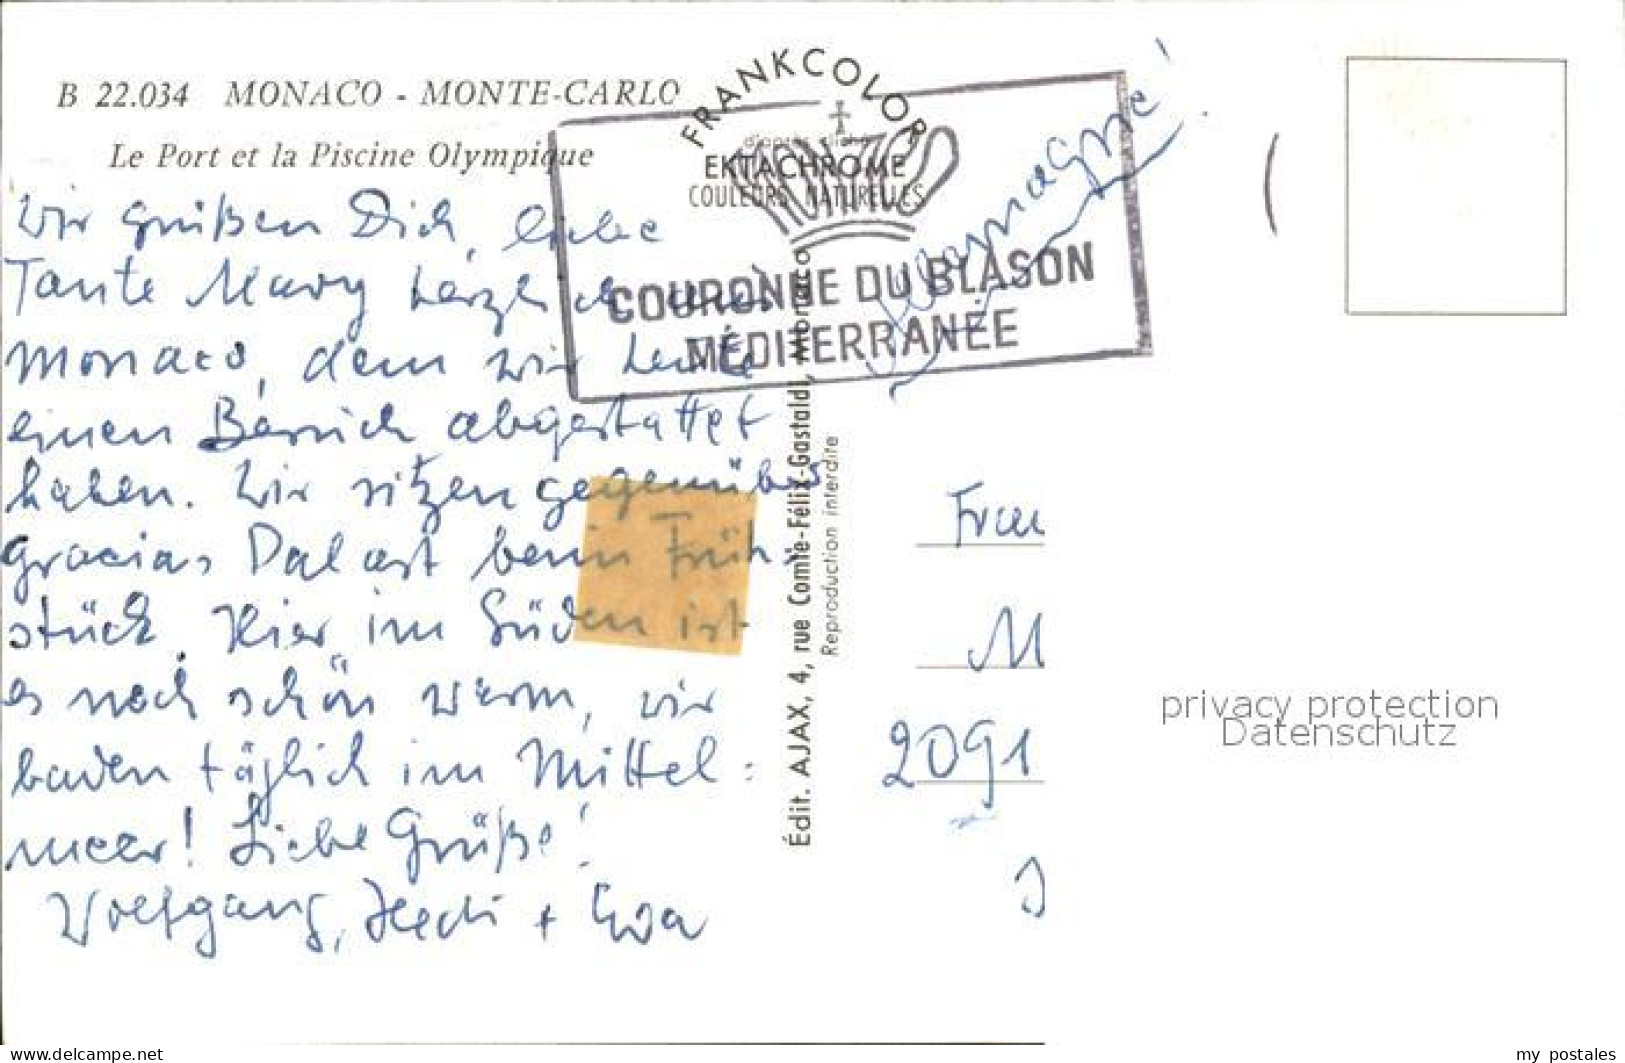 B 22.034 MONACO - MONTE-CARLO
Le Port et la Piscine Olympique
FRANKCOLOR
d'après cliché
EKTACHROME
COULEURS NATURELLES
MONTE
COURONNE DU BLASON
MÉDITERRANÉE
Allemagne!
Wir grüßen Dich, liebe
Tante Mary herzlich aus
Monaco, dem wir heute
einen Besuch abgestattet
haben. Wir sitzen gegenüber
Gracias Palast beim Früh-
stück. Hier im Süden ist
es noch schön warm, wir
baden täglich im Mittel-
meer! Liebe Grüße!
Wolfgang, Hedi + Eva
Édit. AJAX, 4, rue Comte-Félix-Gastaldi, Monaco
Reproduction interdite
Frau
M
2091
privacy protection
Datenschutz
delcampe.net
my_postales